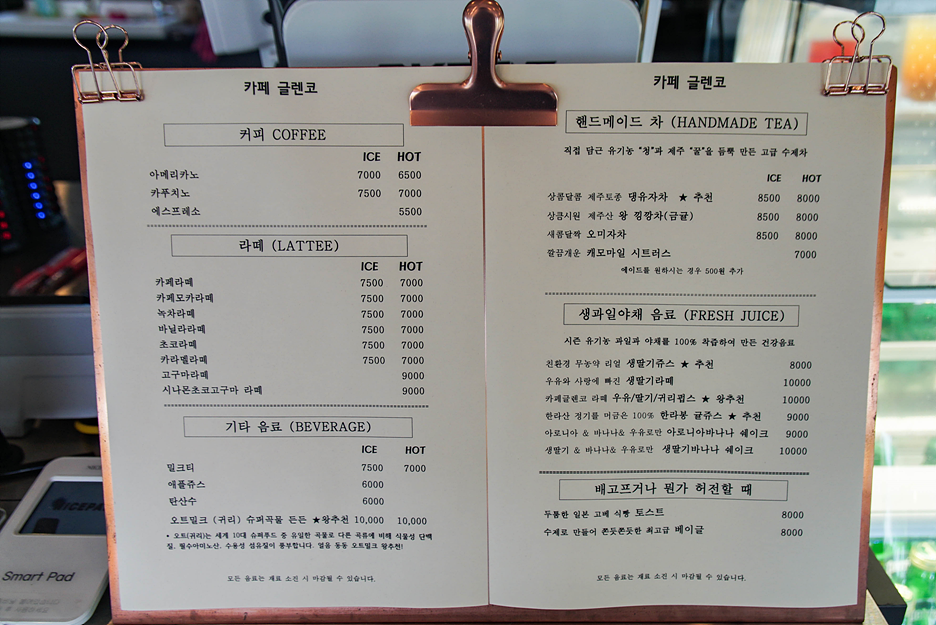 카페 글렌코
커피 COFFEE
ICE HOT
아메리카노 7000 6500
카푸치노 7500 7000
에스프레소 5500
라떼 (LATTEE)
ICE HOT
카페라떼 7500 7000
카페모카라떼 7500 7000
녹차라떼 7500 7000
바닐라라떼 7500 7000
초코라떼 7500 7000
카라멜라떼 7500 7000
고구마라떼 9000
시나몬초코고구마 라떼 9000
기타 음료 (BEVERAGE)
ICE HOT
밀크티 7500 7000
애플쥬스 6000
탄산수 6000
오트밀크 (귀리) 슈퍼곡물 든든 ★왕추천 10,000 10,000
* 오트(귀리)는 세계 10대 슈퍼푸드 중 유일한 곡물로 다른 곡류에 비해 식물성 단백
질, 필수아미노산, 수용성 섬유질이 풍부합니다. 얼음 동동 오트밀크 왕추천!
모든 음료는 재료 소진 시 마감될 수 있습니다.
카페 글렌코
핸드메이드 차 (HANDMADE TEA)
직접 담근 유기농 "청"과 제주 "꿀"을 듬뿍 만든 고급 수제차
ICE HOT
상콤달콤 제주토종 댕유자차 ★ 추천 8500 8000
상큼시원 제주산 왕 낑깡차(금귤) 8500 8000
새콤달짝 오미자차 8500 8000
깔끔개운 캐모마일 시트러스 7000
에이드를 원하시는 경우 500원 추가
생과일야채 음료 (FRESH JUICE)
시즌 유기농 과일과 야채를 100% 착즙하여 만든 건강음료
친환경 무농약 리얼 생딸기쥬스 ★ 추천 8000
우유와 사랑에 빠진 생딸기라떼 10000
카페글렌코 라떼 우유/딸기/귀리펍스 ★ 왕추천 10000
한라산 정기를 머금은 100% 한라봉 귤쥬스 ★ 추천 9000
아로니아 & 바나나& 우유로만 아로니아바나나 쉐이크 9000
생딸기 & 바나나& 우유로만 생딸기바나나 쉐이크 10000
배고프거나 뭔가 허전할 때
두툼한 일본 고베 식빵 토스트 8000
수제로 만들어 쫀듯쫀듯한 최고급 베이글 8000
모든 음료는 재료 소진 시 마감될 수 있습니다.
Smart Pad